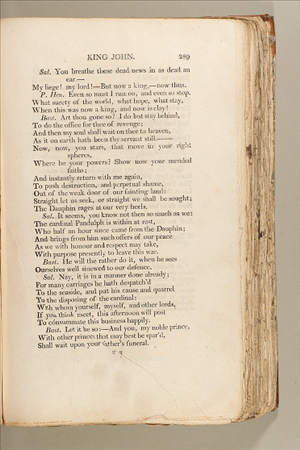 KING JOHN. 289
Sal. You breathe these dead news in as dead an
ear.—
My liege! my lord!—But now a king,—now thus.
P. Hen. Even so must I run on, and even so stop.
What surety of the world, what hope, what stay,
When this was now a king, and now is clay!
Bast. Art thou gone so? I do but stay behind,
To do the office for thee of revenge;
And then my soul shall wait on thee to heaven,
As it on earth hath been thy servant still.——
Now, now, you stars, that move in your right
spheres,
Where be your powers? Show now your mended
faiths;
And instantly return with me again,
To push destruction, and perpetual shame,
Out of the weak door of our fainting land:
Straight let us seek, or straight we shall be sought;
The Dauphin rages at our very heels.
Sal. It seems, you know not then so much as we:
The cardinal Pandulph is within at rest,
Who half an hour since came from the Dauphin;
And brings from him such offers of our peace
As we with honour and respect may take,
With purpose presently to leave this war.
Bast. He will the rather do it, when he sees
Ourselves well sinewed to our defence.
Sal. Nay, it is in a manner done already;
For many carriages he hath despatch'd
To the seaside, and put his cause and quarrel
To the disposing of the cardinal:
With whom yourself, myself, and other lords,
If you think meet, this afternoon will post
To consummate this business happily.
Bast. Let it be so:—And you, my noble prince,
With other princes that may best be spar'd,
Shall wait upon your father's funeral.